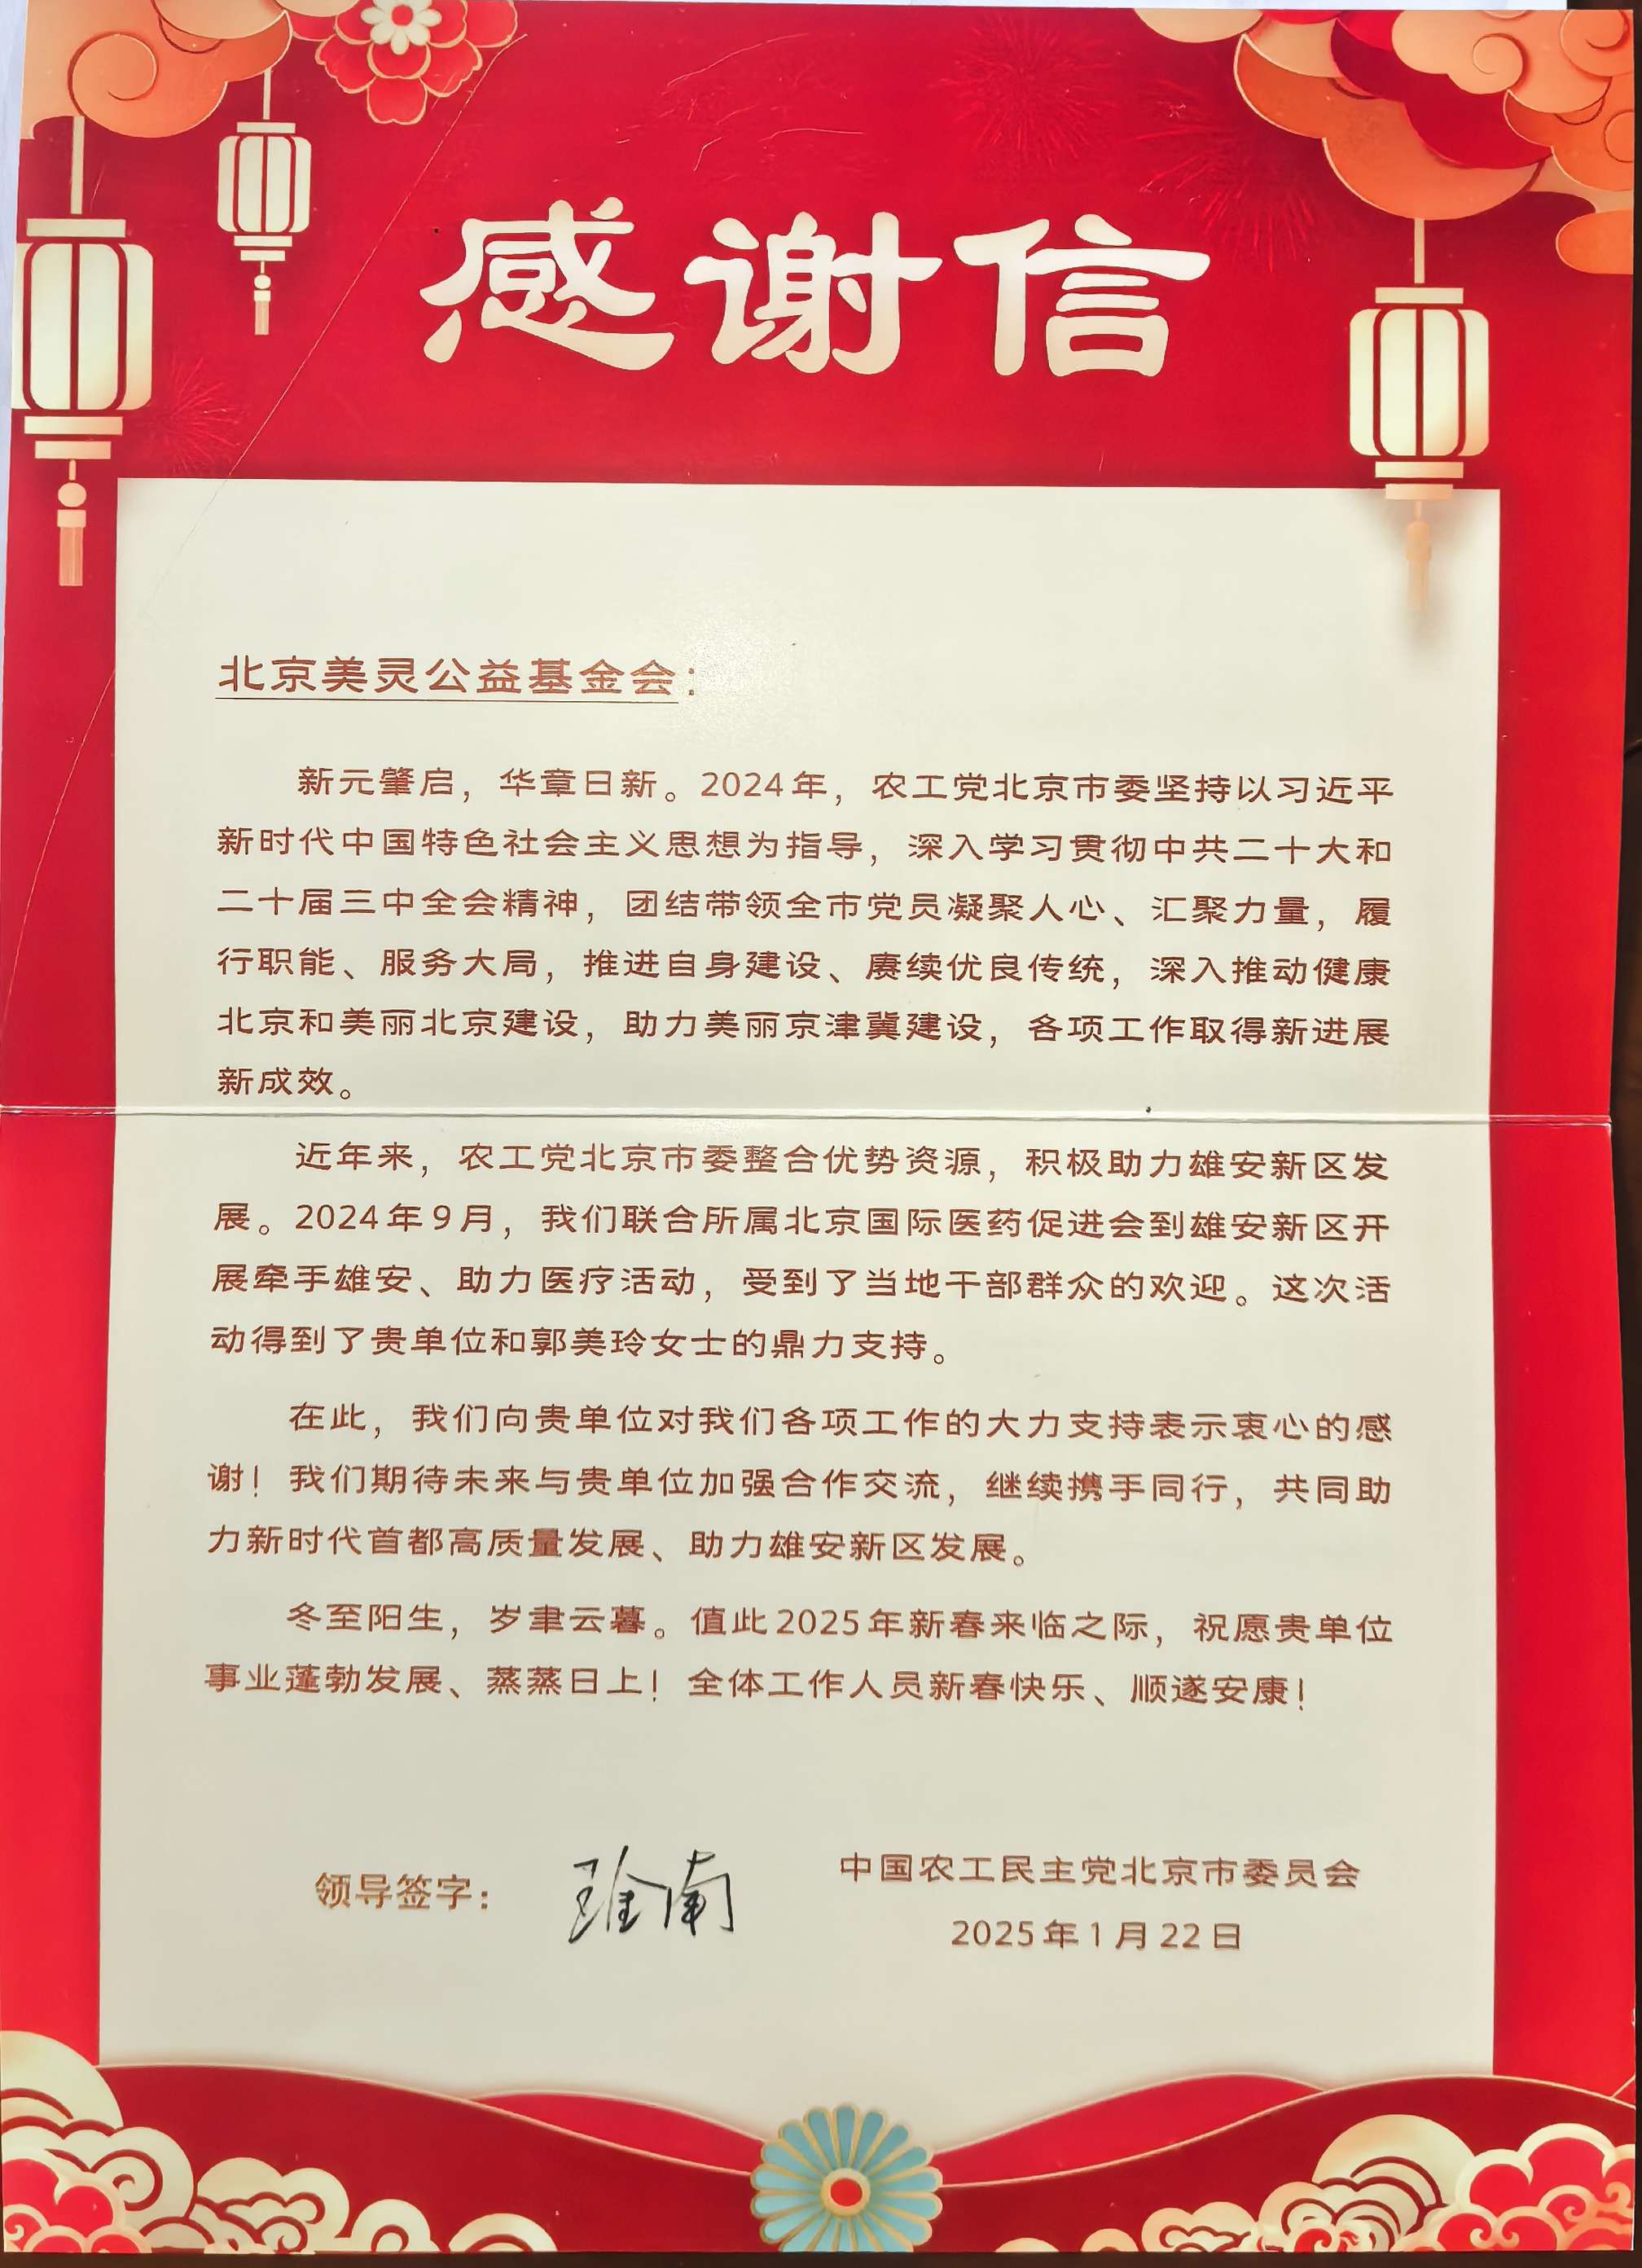 感谢信
北京美灵公益基金会：
新元肇启，华章日新。2024年，农工党北京市委坚持以习近平
新时代中国特色社会主义思想为指导，深入学习贯彻中共二十大和
二十届三中全会精神，团结带领全市党员凝聚人心、汇聚力量，履
行职能、服务大局，推进自身建设、赓续优良传统，深入推动健康
北京和美丽北京建设，助力美丽京津冀建设，各项工作取得新进展
新成效。
近年来，农工党北京市委整合优势资源，积极助力雄安新区发
展。2024年9月，我们联合所属北京国际医药促进会到雄安新区开
展牵手雄安、助力医疗活动，受到了当地干部群众的欢迎。这次活
动得到了贵单位和郭美玲女士的鼎力支持。
在此，我们向贵单位对我们各项工作的大力支持表示衷心的感
谢！我们期待未来与贵单位加强合作交流，继续携手同行，共同助
力新时代首都高质量发展、助力雄安新区发展。
冬至阳生，岁聿云暮。值此2025年新春来临之际，祝愿贵单位
事业蓬勃发展、蒸蒸日上！全体工作人员新春快乐、顺遂安康！
领导签字：
中国农工民主党北京市委员会
2025年1月22日